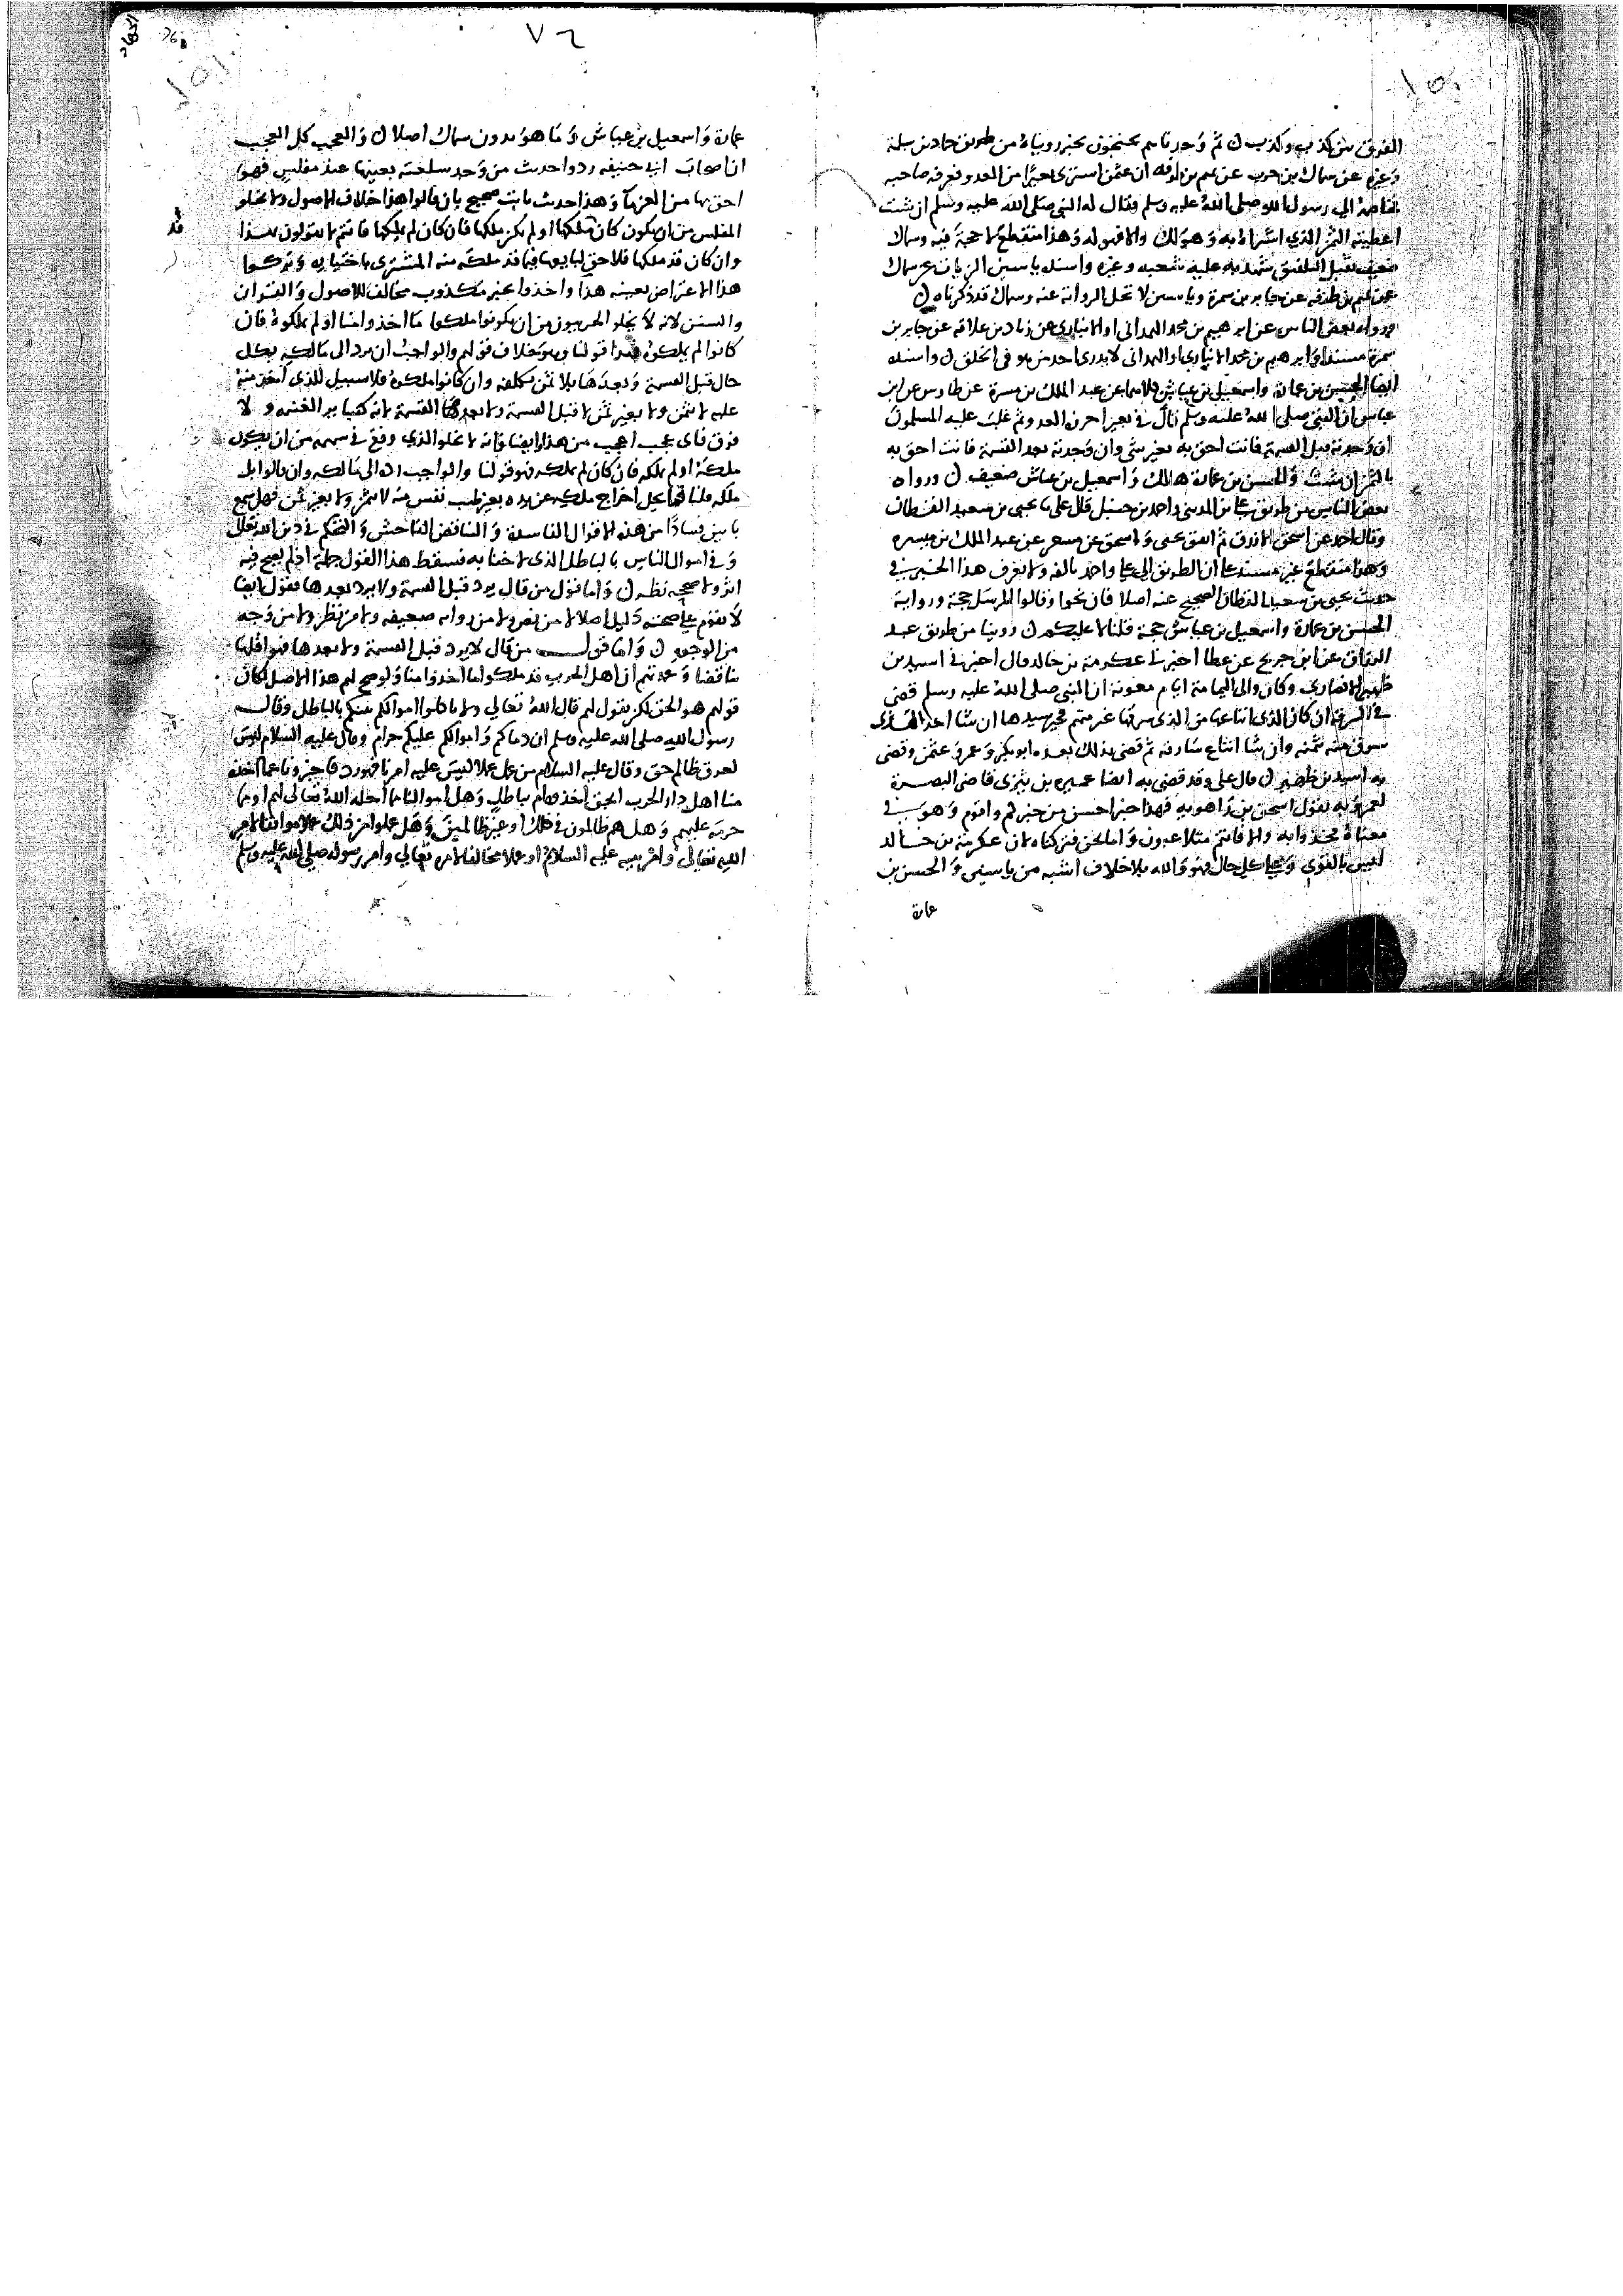 الفرق بين كذب وكذب ثم وجدناهم يحتجون بخبر رويناه من طريق حماد بن سلمة
وغيره عن سماك بن حرب عن تميم بن طرفه ان عثمن اشترى بعيرا من العدو فعرفه صاحبه
فخاصمه الي رسول الله صلى الله عليه وسلم فقال له النبي صلى الله عليه وسلم ان شئت
اعطيته الثمن الذي اشتراه به وهو لك والا فهو له وهذا منقطع لا حجة فيه وسماك
ضعيف يقبل التلقين شهد به عليه شعبه وغيره واسنده ياسين الزيات عن سماك
عن تميم بن طرفه عن جابر بن سمرة وياسين لا تحل الرواية عنه وسماك قد ذكرناه
ورواه بعض الناس عن ابرهيم بن محمد الهمداني او الانباري عن زياد بن علاقه عن جابر بن
سمرة مسندا وابرهيم بن محمد الانباري او الهمداني لا يدرى احد من هو في الخلق واسنده
ايضا الحسن بن عمارة واسمعيل بن عياش كلاهما عن عبد الملك بن ميسرة عن طاوس عن ابن
عباس ان النبي صلى الله عليه وسلم قال في بعير احرزه العدو ثم غلب عليه المسلمون
ان وجدته قبل القسمة فانت احق به بغير شي وان وجدته بعد القسمة فانت احق به
بالثمن ان شئت والحسن بن عمارة هالك واسمعيل بن عياش ضعيف ورواه
بعض الناس من طريق علي بن المديني واحمد بن حنبل قال علي نا يحيى بن سعيد القطان
وقال احمد عن اسحق الازرق ثم اتفق يحيى واسحق عن مسعر عن عبد الملك بن ميسره
وهذا منقطع غير مسند على ان الطريق الي علي واحمد تالفه ولا يعرف هذا الخبر في
حديث يحيى بن سعيد القطان الصحيح عنه اصلا فان لجوا وقالوا المرسل حجة ورواية
الحسن بن عمارة واسمعيل بن عياش حجة قلنا لا عليكم روينا من طريق عبد
الرزاق عن ابن جريج عن عطا اخبرنا عكرمة بن خالد قال اخبرني اسيد بن
ظهير الانصاري وكان والى اليمامة ايام معوية ان النبي صلى الله عليه وسلم قضى
في السرقة ان كان الذي ابتاعها من الذي سرقها غير متهم مخير سيدها ان شا اخذ الذي
سرق منه بثمنه وان شا اتبع سارقه ثم قضى بذلك بعده ابو بكر وعمر وعثمن وقضى
به اسيد بن ظهير قال علي وقد قضى به ايضا عميره بن يثربى قاضى البصرة
لعمر وبه يقول اسحق بن راهويه فهذا خبر احسن من خبركم واقوم وهو في
معناه فخذوا به والا فانتم متلاعبون واما نحن فتركناه لان عكرمة بن خالد
ليس بالقوي وعلى كل حال فهو والله بلا خلاف اشبه من ياسين والحسن بن
عمارة
عمارة واسمعيل بن عياش وما هو بدون سماك اصلا والعجب كل العجب
ان اصحاب ابي حنيفه ردوا حديث من وجد سلعته بعينها عند مفلس فهو
احق بها من الغرما وهذا حديث ثابت صحيح بان قالوا هذا خلاف الاصول ولا يخلو
المفلس من ان يكون كان ملكها او لم يكن ملكها فان كان لم يملكها فانتم لا تقولون بهذا
وان كان قد ملكها فلا حق لبايعها فيما قد ملكه منه المشترى باختياره وتركوا
هذا الاعتراض بعينه هنا واخذوا بخبر مكذوب مخالف للاصول والقران
والسنن لانه لا يخلو الحربيون من ان يكونوا ملكوا ما اخذوا منا او لم يملكوه فان
كانوا لم يملكوه فهذا قولنا وهو خلاف قولهم والواجب ان يرد الى مالكه بكل
حال قبل القسمة وبعدها بلا ثمن يكلفه وان كانوا ملكوه فلا سبيل للذي اخذ منه
عليه لا بثمن ولا بغير ثمن لا قبل القسمة ولا بعد القسمة لانه كسائر الغنيمة ولا
فرق فاى عجب اعجب من هذا وايضا فانه لا يخلو الذي وقع في سهمه من ان يكون
ملكه او لم يملكه فان كان لم يملكه فهو قولنا والواجب رده الى مالكه وان قالوا بل
ملكه قلنا فما يحل اخراج ملكه عن يده بغير طيب نفس منه لا بثمن ولا بغير ثمن فهل سمع
بابين فسادا من هذه الاقوال الفاسدة والتناقض الفاحش والتحكم في دين الله تعالى
وفي اموال الناس بالباطل الذي لا خفا به فسقط هذا القول جملة اذ لم يصح فيه
اثر ولا صححه نظر واما قول من قال يرد قبل القسمة ولا يرد بعدها فقول ايضا
لا يقوم على صحته دليل اصلا لا من نص ولا من رواية ضعيفه ولا من نظر ولا من وجه
من الوجوه واما قول من قال لا يرد قبل القسمة ولا بعدها فهو اقلها
تناقضا وعمدتهم ان اهل الحرب قد ملكوا ما اخذوا منا ولو صح لهم هذا الاصل لكان
قولهم هو الحق لكن نقول لهم قال الله تعالي ولا تاكلوا اموالكم بينكم بالباطل وقال
رسول الله صلى الله عليه وسلم ان دماكم واموالكم عليكم حرام وقال عليه السلام ليس
لعرق ظالم حق وقال عليه السلام من عمل عملا ليس عليه امرنا فهو رد فاخبرونا عما اخذه
منا اهل دار الحرب ابحق اخذوه ام بباطل وهل اموالنا مما احله الله تعالي لهم او مما
حرمه عليهم وهل هم ظالمون في ذلك او غير ظالمين وهل عملوا من ذلك عملا موافقا لامر
الله تعالى وامر نبيه عليه السلام او عملا مخالفا لامره تعالي وامر رسوله صلي الله عليه وسلم